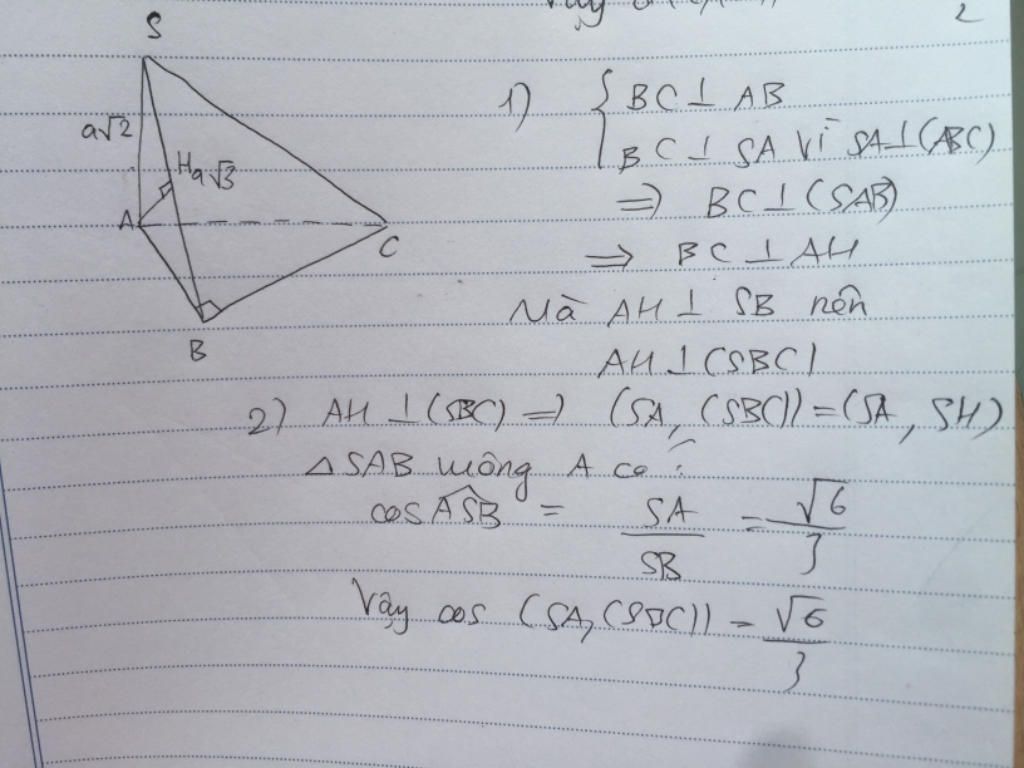 2
S
a√2
H
a√3
A
C
B
1) { BC ⊥ AB
BC ⊥ SA vì SA ⊥ (ABC)
=> BC ⊥ (SAB)
=> BC ⊥ AH
Mà AH ⊥ SB nên
AH ⊥ (SBC)
2) AH ⊥ (SBC) => (SA, (SBC)) = (SA, SH)
△ SAB vuông A có :
cos ASB = SA/SB = √6/3
Vậy cos (SA, (SBC)) = √6/3